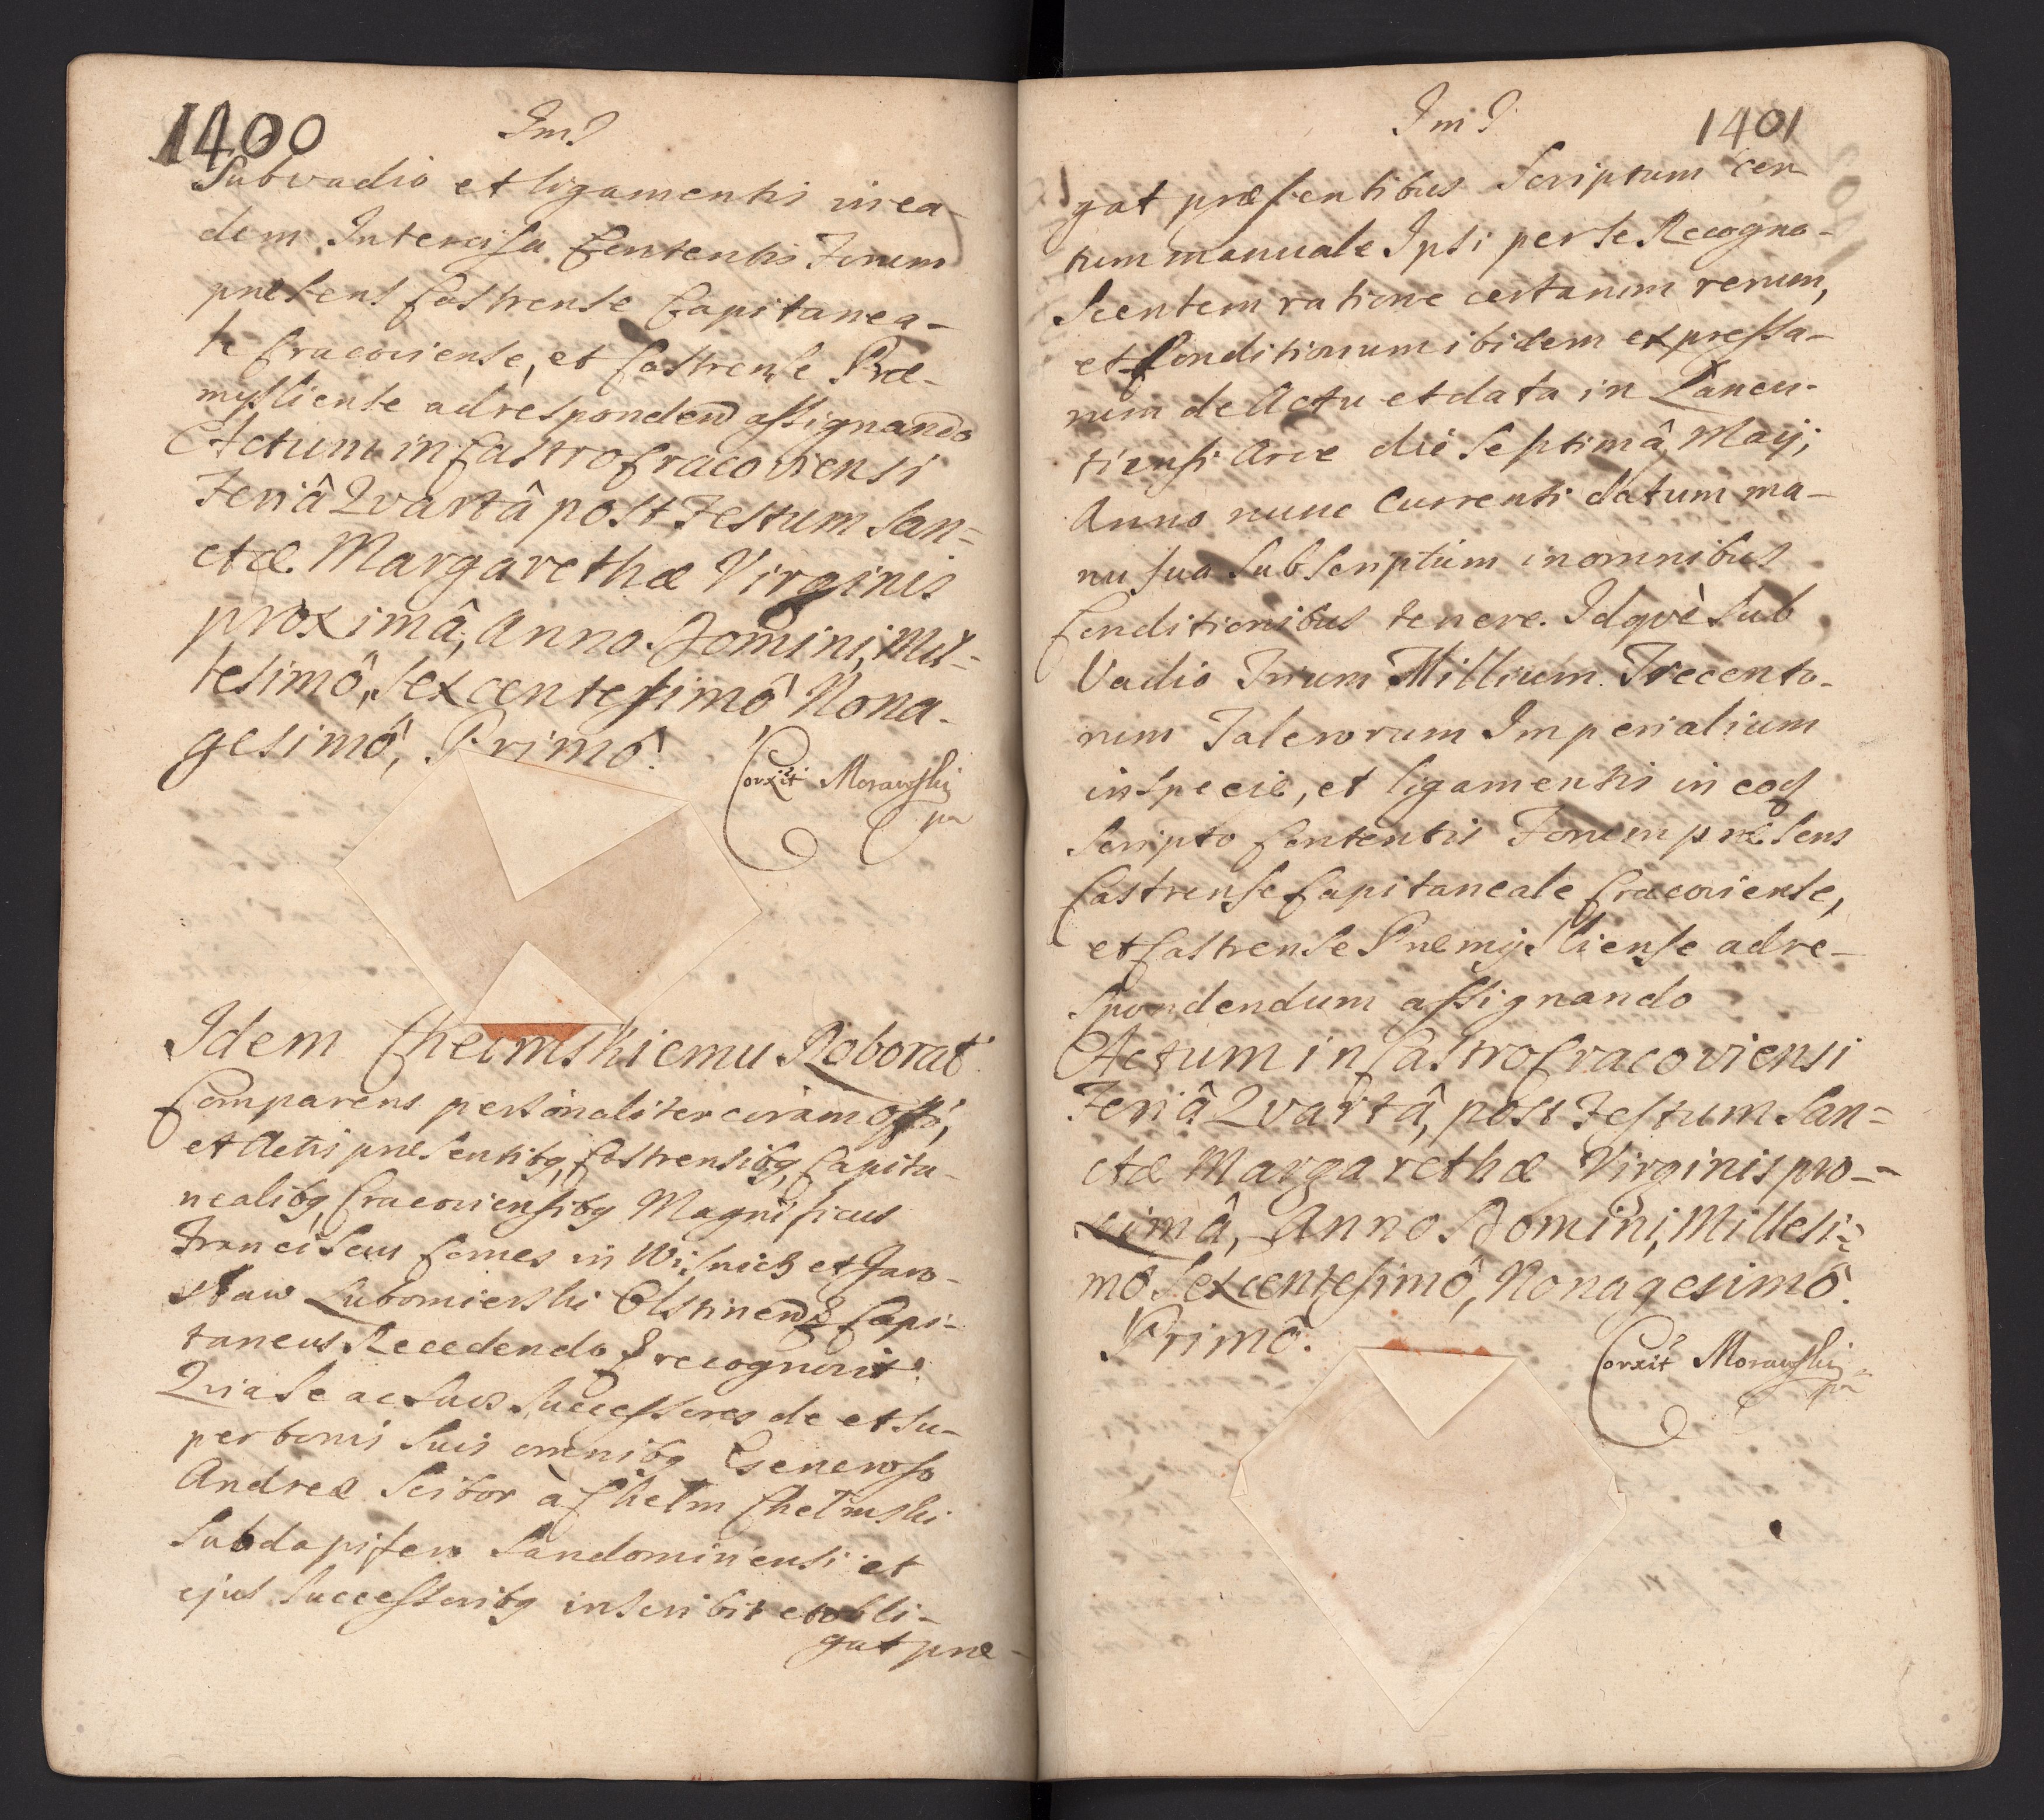 1400
Im J
Subvadio et ligamentis in ea-
dem Intercisa Contentis Forum
præsens Castrense Capitanea-
le Cracoviense, et Castrense Præ-
mysliense ad respondend assignando
Actum in Castro Cracoviensi
Feriâ Qvartâ post Festum San=
ctæ Margarethæ Virginis
proximâ, Anno Domini, Mil=
lesimô, Sexcentesimô Nona-
gesimô, Primô.
Corxit Morawski
Idem Chełmskiemu Roborat
Comparens personaliter coram Offô,
et Actis præsentibq, Castrensibq, Capita-
nealibq Cracoviensibq Magnificus
Franciscus Comes in Wisnicz et Jaro-
sław Lubomierski Olstinen Capi-
taneus Recedendo recognovit.
Quia se ac suos Successores de et su-
per bonis suis omnibq Generoso
Andreæ Scibor à Chełm Chełmski
Subdapifero Sandomiriensi et
ejus Successoribq inscribit et obli-
gat præ-
Im J
1401
gat præsentibus Scriptum cer
tum manuale Ipsi per se Recogno-
scentem ratione certarum rerum,
et Conditionum ibidem expressa-
rum de Actu et data in Lancu-
tiensi Arce die Septimâ Maij;
Anno nunc Currenti datum ma-
nu sua Subscriptum in omnibus
Conditionibus tenere. Idqvè Sub
Vadio Trium Millium Trecento-
rum Talerorum Imperialium
in specie, et ligamentis in eoq
Scripto Contentis Forum præsens
Castrense Capitaneale Cracoviense,
et Castrense Præmysliense ad re-
spondendum assignando
Actum in Castro Cracoviensi
Feriâ Qvartâ, post Festum San=
ctæ Margarethæ Virginis pro-
ximâ, Anno Domini, Millesi=
mo Sexcentesimô, Nonagesimô.
Primô.
Corxit Morawski